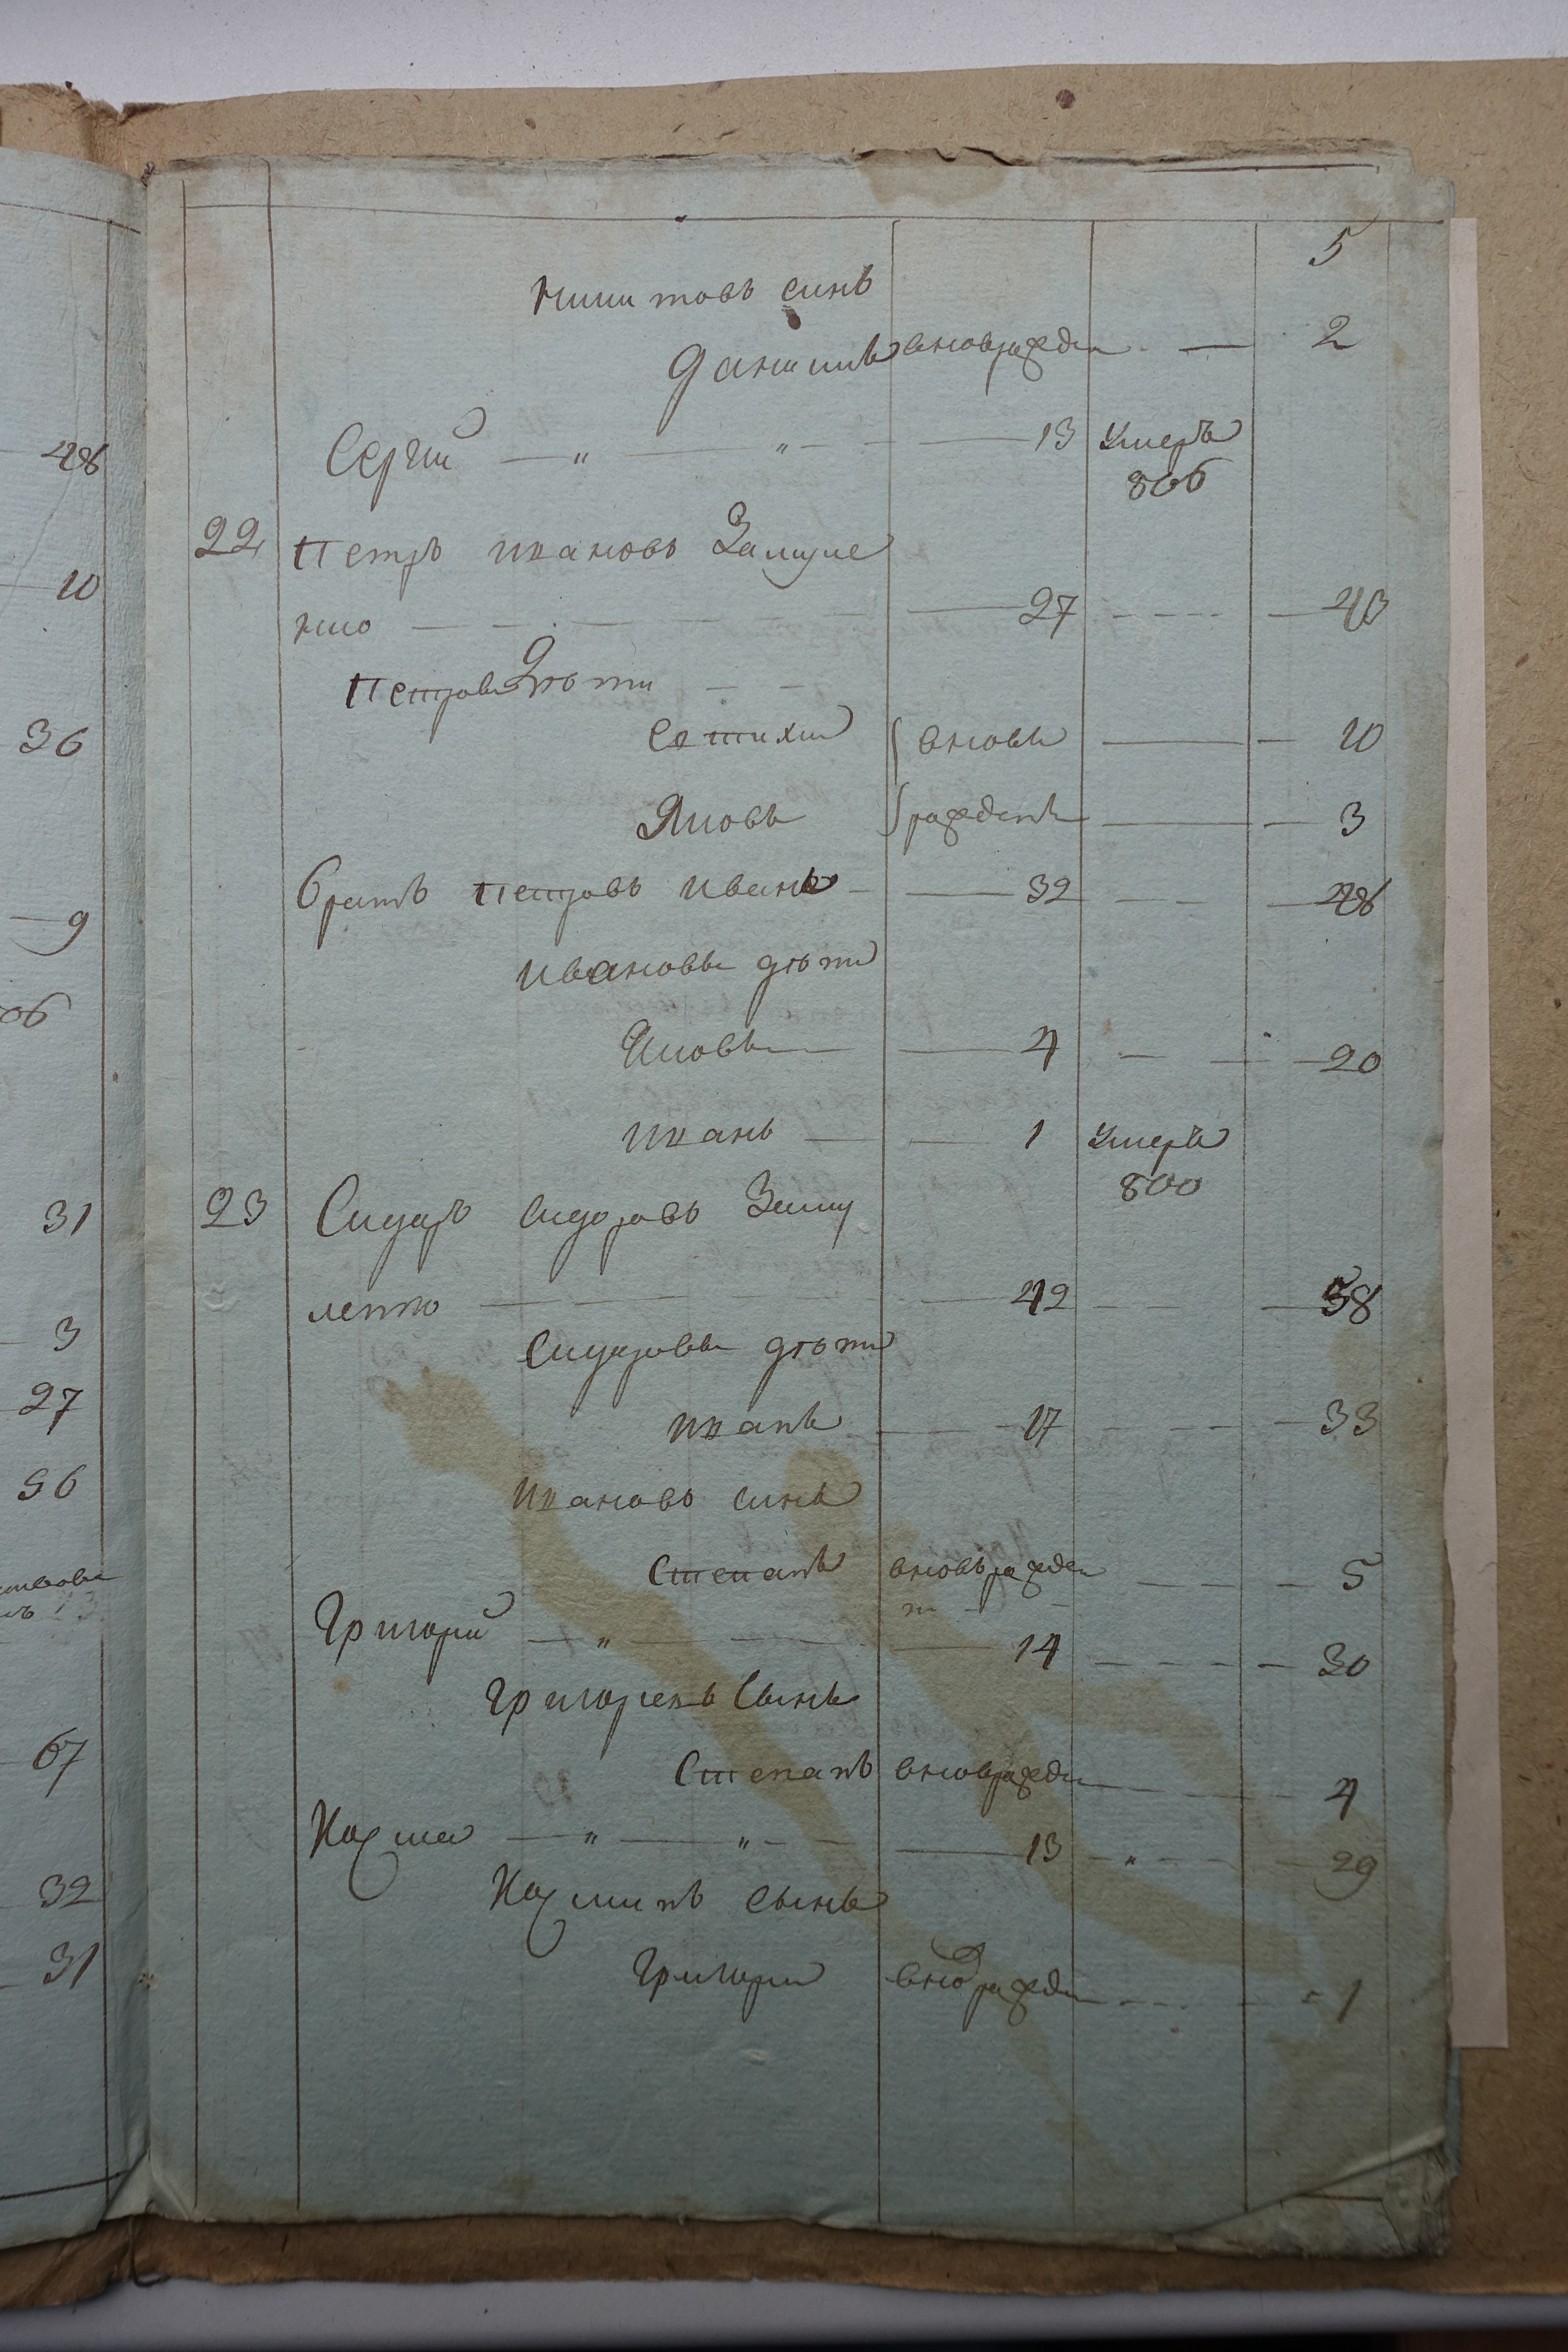 5
Никитовъ синъ
Данилъ вновьрожден — 2
Сергий — " — " — 13 Умеръ
806
22 Петръ Ивановъ Зализе
нко — 27 — 43
Петровы Дѣти
вновь — 10
Яковъ рожденъ — 3
братъ Петровъ Иванъ — 32 — 48
Ивановы дѣти
Яковъ — 4 — 20
Иванъ — 1 Умеръ
800
23 Сидоръ Сидоровъ Зали
— 42 — 58
Сидоровы дѣти
Иванъ — 17 — 33
Ивановъ синъ
Степанъ вновьрожден — 5
Григорий — " — 14 — 30
Григориевъ Сынъ
Степанъ вноврожден — 4
Козма — " — " — 13 — " — 29
Козминъ сынъ
Григорий вноврожден — 1
48
10
36
9
06
31
3
27
56
67
32
31